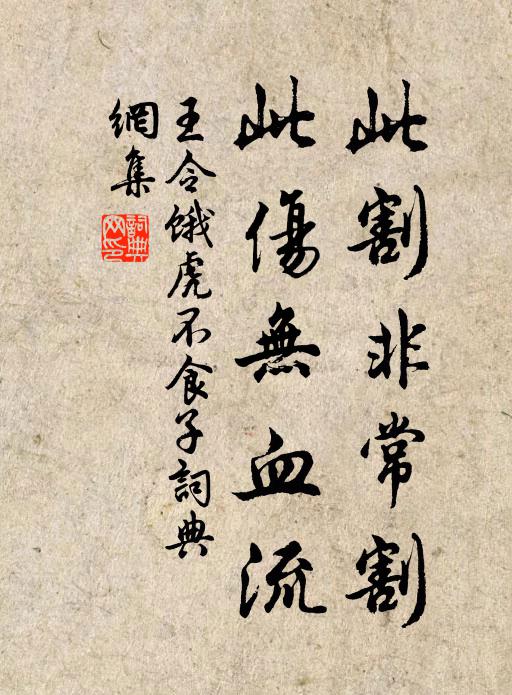 此割非常割
此傷無血流
王令餓虎不食子詞典
網集
詞典網印